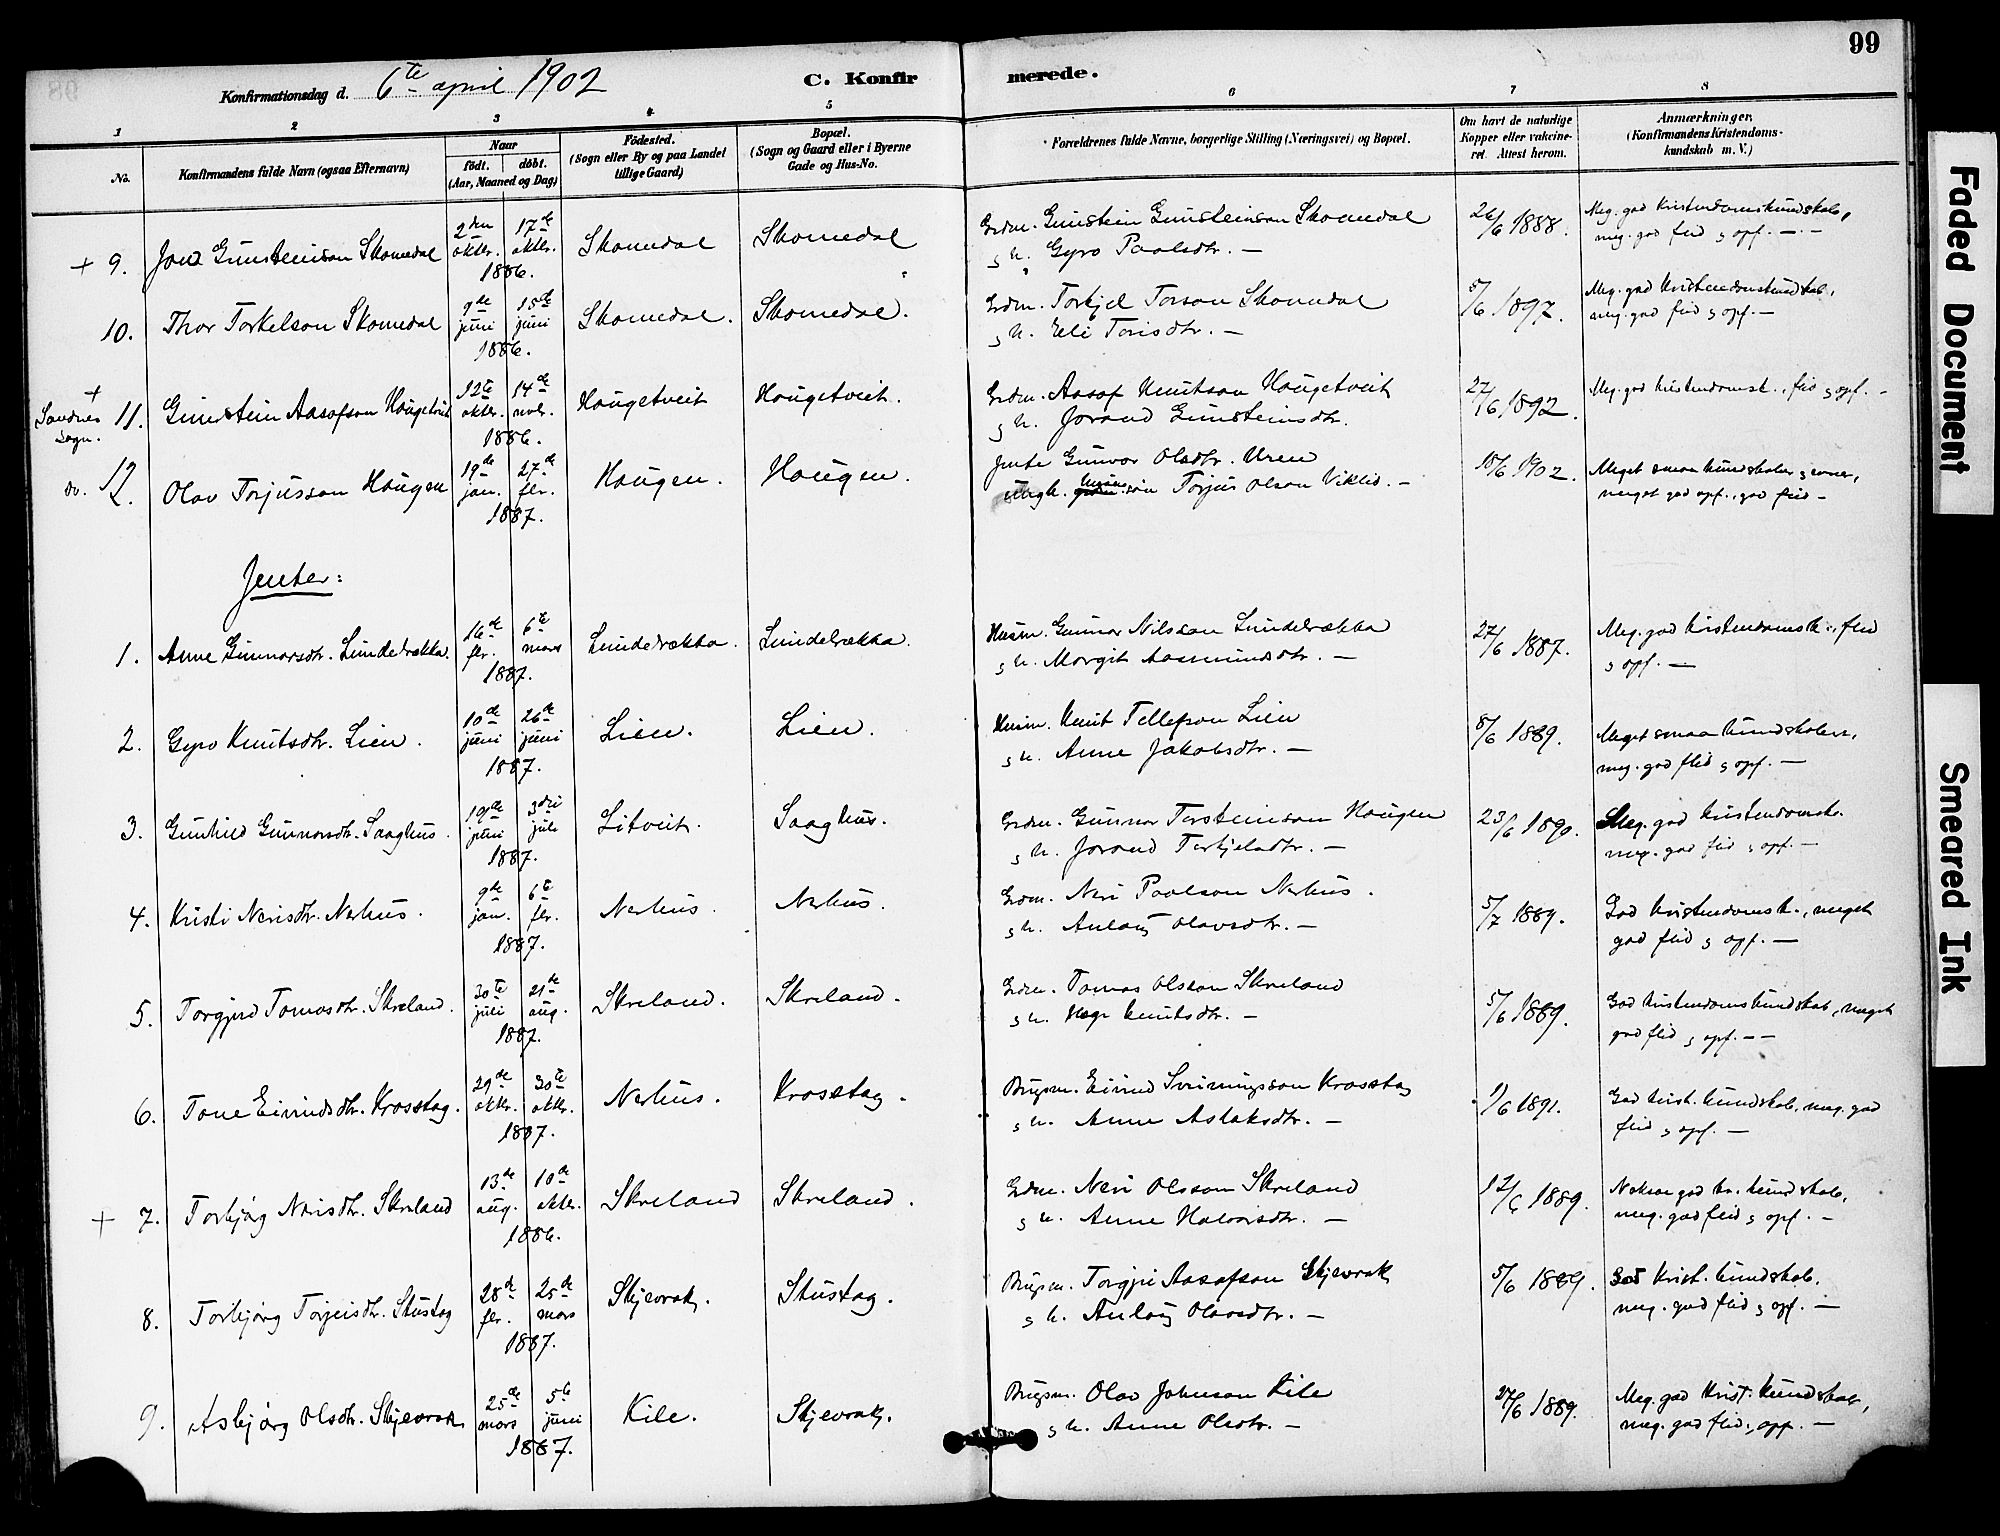 99
Konfirmationsdag d. 6te april 1902 C. Konfirmerede.
1 2 3 4 5 6 7 8
No. Konfirmandens fulde Navn (ogsaa Efternavn)
Naar
födt. döbt.
(Aar, Maaned og Dag)
Födested.
(Sogn eller By og paa Landet
tillige Gaard)
Bopæl.
(Sogn og Gaard eller i Byerne
Gade og Hus-No.
Forældrenes fulde Navne, borgerlige Stilling (Næringsvei) og Bopæl.
Om havt de naturlige
Kopper eller vakcine-
ret. Attest herom.
Anmærkninger.
(Konfirmandens Kristendoms-
kundskab m. V.)
+ 9. Jon Gunsteinson Skomedal 2den oktbr. 17de oktbr. 1886. Skomedal Skomedal Grdm. Gunstein Gunsteinson Skomedal 26/6 1888. Meg. god Kristendomskundskab,
og h. Gyro Paalsdtr. — meg. god flid og opf. —
10. Thor Torkelson Skomedal 9de juni 15de juni 1886. Skomedal. Skomedal. Grdm. Torkjel Torson Skomedal 5/6 1897. Meg. god Kristendomskundskab,
og h. Eli Torisdtr. — meg. god flid og opf. —
+ Sandnes Sogn. 11. Gunstein Aasofson Haugetveit 12te oktbr. 14de novbr. 1886. Haugetveit Haugetveit. Grdm. Aasof Knutson Haugetveit 27/6 1892. Meg. god Kristendomsk., flid og opf. —
og h. Jorand Gunsteinsdtr.
do. 12. Olav Torjusson Haugen 19de jan. 27de fbr. 1887. Haugen. Haugen. Jente Gunvor Olsdtr. Uren 10/6 1902. Meget smaa kundskaber og evner,
ungk. søn Torjus Olson Viklid. — meget god opf., god flid —
Jenter:
1. Anne Gunnarsdtr. Lunderækka. 16de fbr. 6te mars 1887. Lunderækka. Lunderækka. Husm. Gunnar Nilsson Lunderækka 27/6 1887. Meg. god Kristendomsk., flid
og h. Margit Aasmundsdtr. — og opf. —
2. Gyro Knutsdtr. Lien. 10de juni 26de juni 1887. Lien. Lien. Husm. Knut Tellefson Lien 8/6 1889. Meget smaa kundskaber,
og h. Anne Jakobsdtr. — meg. god flid og opf. —
3. Gunhild Gunnarsdtr. Saaghus. 19de juni 3die juli 1887. Litveit. Saaghus. Grdm. Gunnar Torsteinson Haugen 23/6 1890. Meg. god Kristendomsk.
og h. Jorand Terkjelsdtr. — meg. god flid og opf. —
4. Kristi Nerisdtr. Nerhus. 9de jan. 6te fbr. 1887. Nerhus. Nerhus. Grdm. Neri Paalson Nerhus. 5/7 1889. God Kristendomsk., meget
og h. Anlaug Olavsdtr. — god flid og opf. —
5. Torgjerd Tomasdtr. Skreland. 30te juli 21de aug. 1887. Skreland. Skreland. Grdm. Tomas Olsson Skreland 5/6 1889. God Kristendomskundskab, meget
og h. Hege Knutsdtr. — god flid og opf. —
6. Tone Eivindsdtr. Krosstog. 29de oktbr. 30te oktbr. 1887. Nerhus. Krosstog. Brugsm. Eivind Sveinungsson Krosstog 9/6 1891. God Krist. kundskab, meg. god
og h. Anne Aslaksdtr. — flid og opf. —
+ 7. Torbjørg Nerisdtr. Skreland 13de aug. 10de oktbr. 1886. Skreland Skreland. Grdm. Neri Olsson Skreland 12/6 1889. Noksaa god kr. kundskab,
og h. Anne Halvorsdtr. — meg. god flid og opf. —
8. Torbjørg Torjeisdtr. Stustog 28de fbr. 25de mars 1887. Skjevrak. Stustog. Brugsm. Torgjei Aasofson Skjevrak 5/6 1889. God Krist. kundskab,
og h. Anlaug Olavsdtr. — meg. god flid og opf. —
9. Asbjørg Olsdtr. Skjevrak 25de mars 5te juni 1887. Kile. Skjevrak. Brugsm. Olav Johnson Kile 27/6 1889. Meg. god Krist. kundskab,
og h. Anne Olsdtr. — meg. god flid, opf. —
Faded Document
Smeared Ink